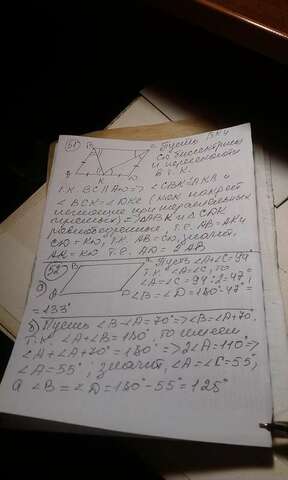 51) B C Пусть BK и
CK биссектрисы
и пересекаются
A K D в т. K.
Т.К. BC||AD => ∠CBK=∠AKB и
∠BCK=∠DKC (как накрест
лежащие при параллельных
прямых) => ΔABK и ΔCDK
равнобедренные, т.е. AB=AK и
CD=KD, т.к. AB=CD, значит,
AK=KD т.е. AD=2AB
52) B C Пусть ∠A+∠C=94°
а) т.к. ∠A=∠C, то
∠A=∠C=94°:2=47°
A D ∠B=∠D=180°-47°=
=133°
б) Пусть ∠B-∠A=70° => ∠B=∠A+70°.
Т.к. ∠A+∠B=180°, то имеем
∠A+∠A+70°=180° => 2∠A=110° =>
∠A=55°; значит, ∠A=∠C=55°,
а ∠B=∠D=180°-55°=125°